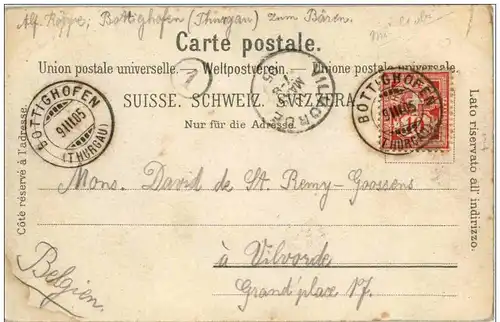 Alf. Keppe, Bottighofen (Thurgau) zum Bären.
Carte postale.
Union postale universelle. – Weltpostverein. – Unione postale universale.
1
SUISSE. SCHWEIZ. SVIZZERA.
Nur für die Adresse.
BOTTIGHOFEN
9 III 05
(THURGAU)
VILVORDE
MARS
05
BOTTIGHOFEN
9 III 05
(THURGAU)
Côté réservé à l'adresse.
Lato riservato all' indirizzo.
Mons. David de St. Remy-Goossens
à Vilvorde
Grand'place 17.
Belgien.